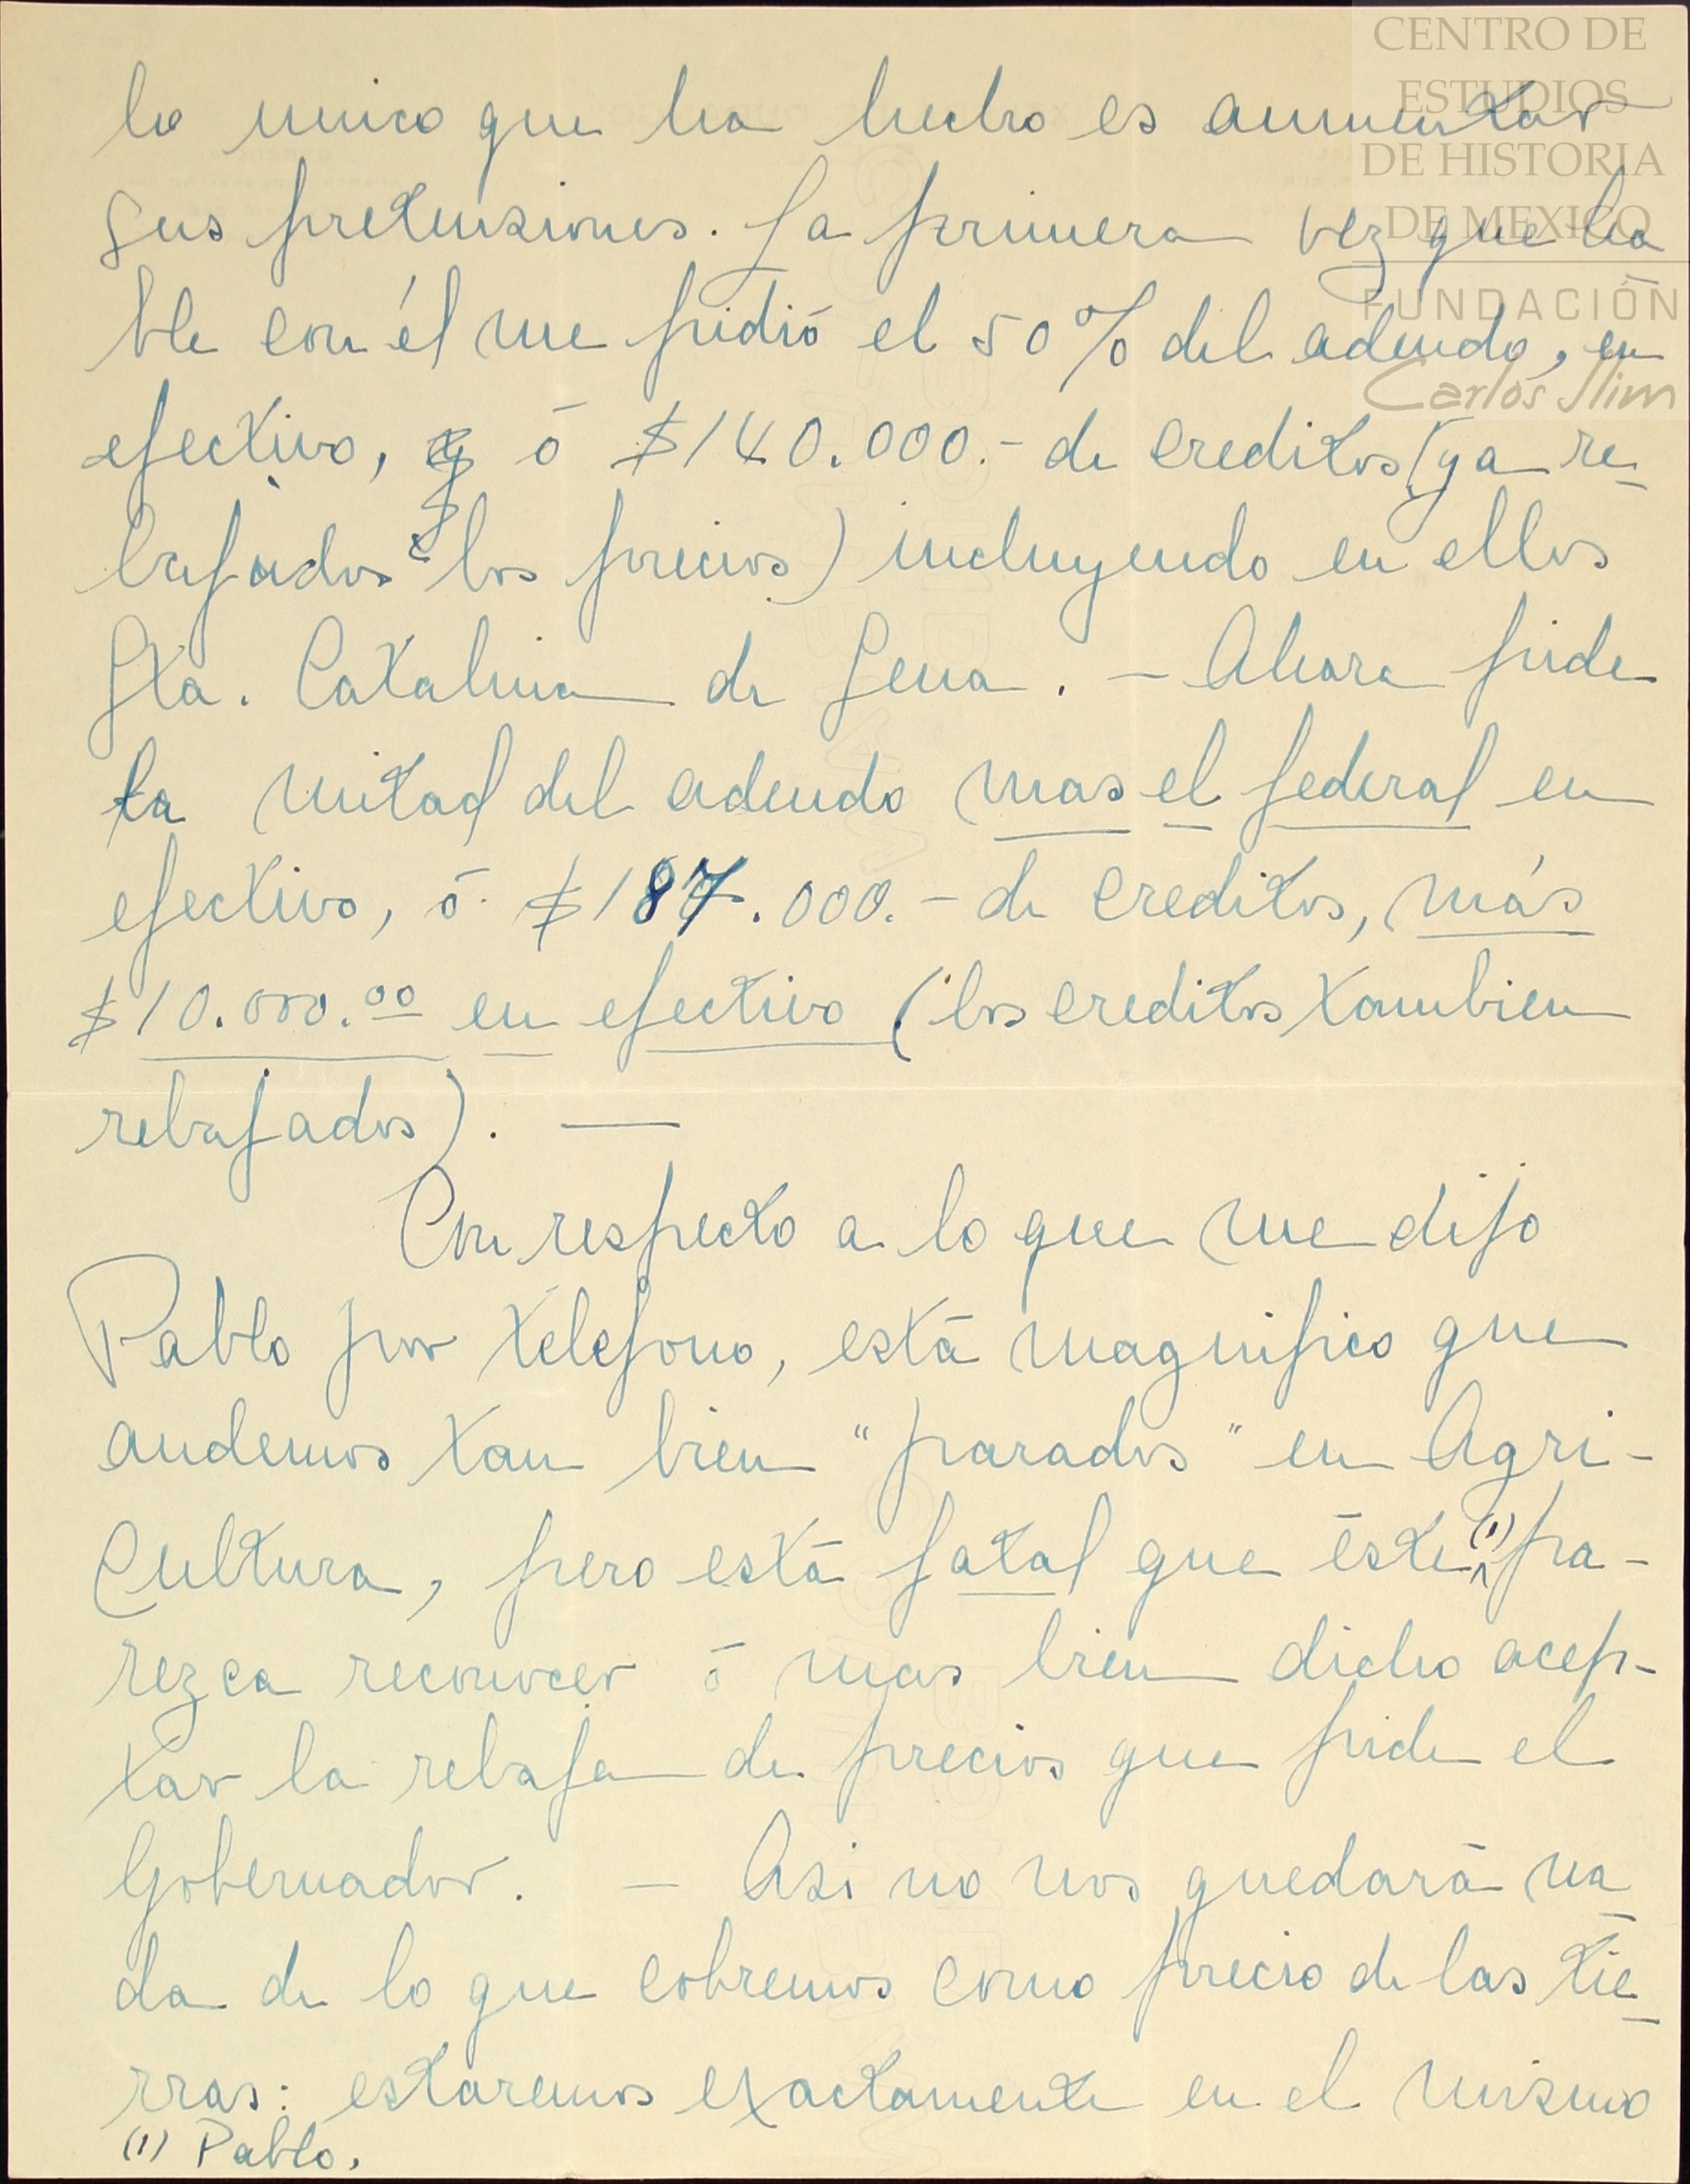 CENTRO DE
ESTUDIOS
DE HISTORIA
DE MEXICO
FUNDACIÓN
Carlos Slim
lo unico que ha hecho es aumentar
sus pretensiones. La primera vez que ha
ble con él me pidió el 50% del adeudo, en
efectivo, ó $140.000.- de creditos (ya re-
bajados los precios) incluyendo en ellos
Sta. Catalina de Sena. - Ahora pide
la mitad del adeudo mas el federal en
efectivo, ó $187.000.- de creditos, más
$10.000.00 en efectivo (los creditos tambien
rebajados). —
Con respecto a lo que me dijo
Pablo por telefono, está magnifico que
andemos tan bien "parados" en Agri-
cultura, pero está fatal que éste (1) pa-
rezca reconocer ó mas bien dicho acep-
tar la rebaja de precios que pide el
Gobernador. - Asi no nos quedará na
da de lo que cobremos como precio de las tie
rras: estaremos exactamente en el mismo
(1) Pablo.